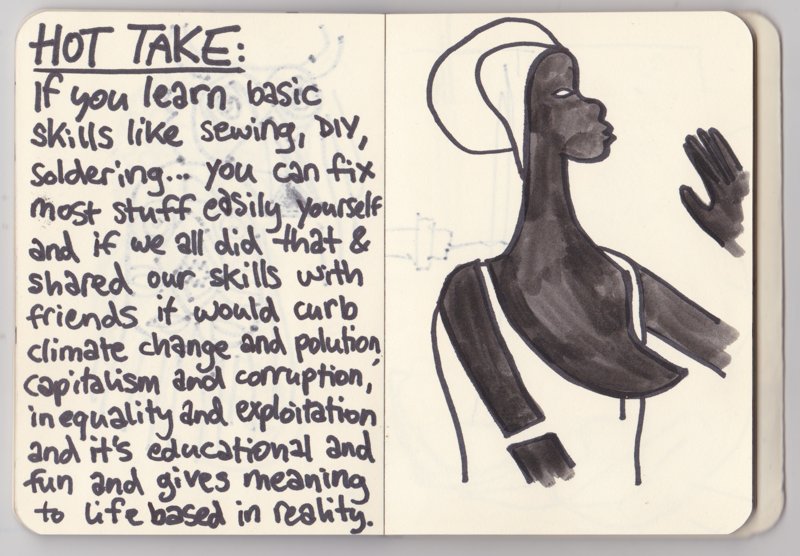 HOT TAKE:
If you learn basic
skills like sewing, DIY,
soldering... you can fix
most stuff easily yourself
and if we all did that &
shared our skills with
friends it would curb
climate change and polution,
capitalism and corruption,
inequality and exploitation
and it's educational and
fun and gives meaning
to life based in reality.